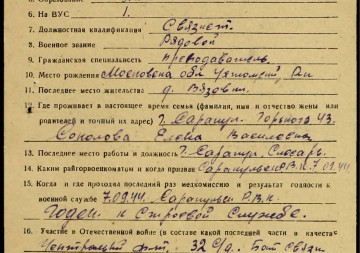 6. На ВУС 1.
7. Должностная квалификация Связист.
8. Военное звание Рядовой
9. Гражданская специальность преподаватель.
10. Место рождения Московская обл.
11. Последнее место жительства д.
12. Где проживает в настоящее время семья (фамилия, имя и отчество жены или
родителей и точный их адрес) г. Сарапул. Горького 43.
Соколова Елена Васильевна
13. Последнее место работы и должность г. Сарапул. Слесарь.
14. Каким райгорвоенкоматом и когда призван Сарапульским Р.В.К. 7.09.44
15. Когда и где проходил последний раз медкомиссию и результат годности к
военной службе 7.09.44. Сарапульск Р.В.К.
Годен к Строевой Службе.
16. Участие в Отечественной войне в составе какой последней части и качестве
32 с/д. Бат связи